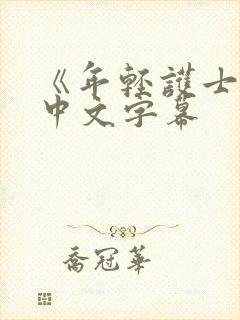 《年輕護士
中文字幕
喬冠華